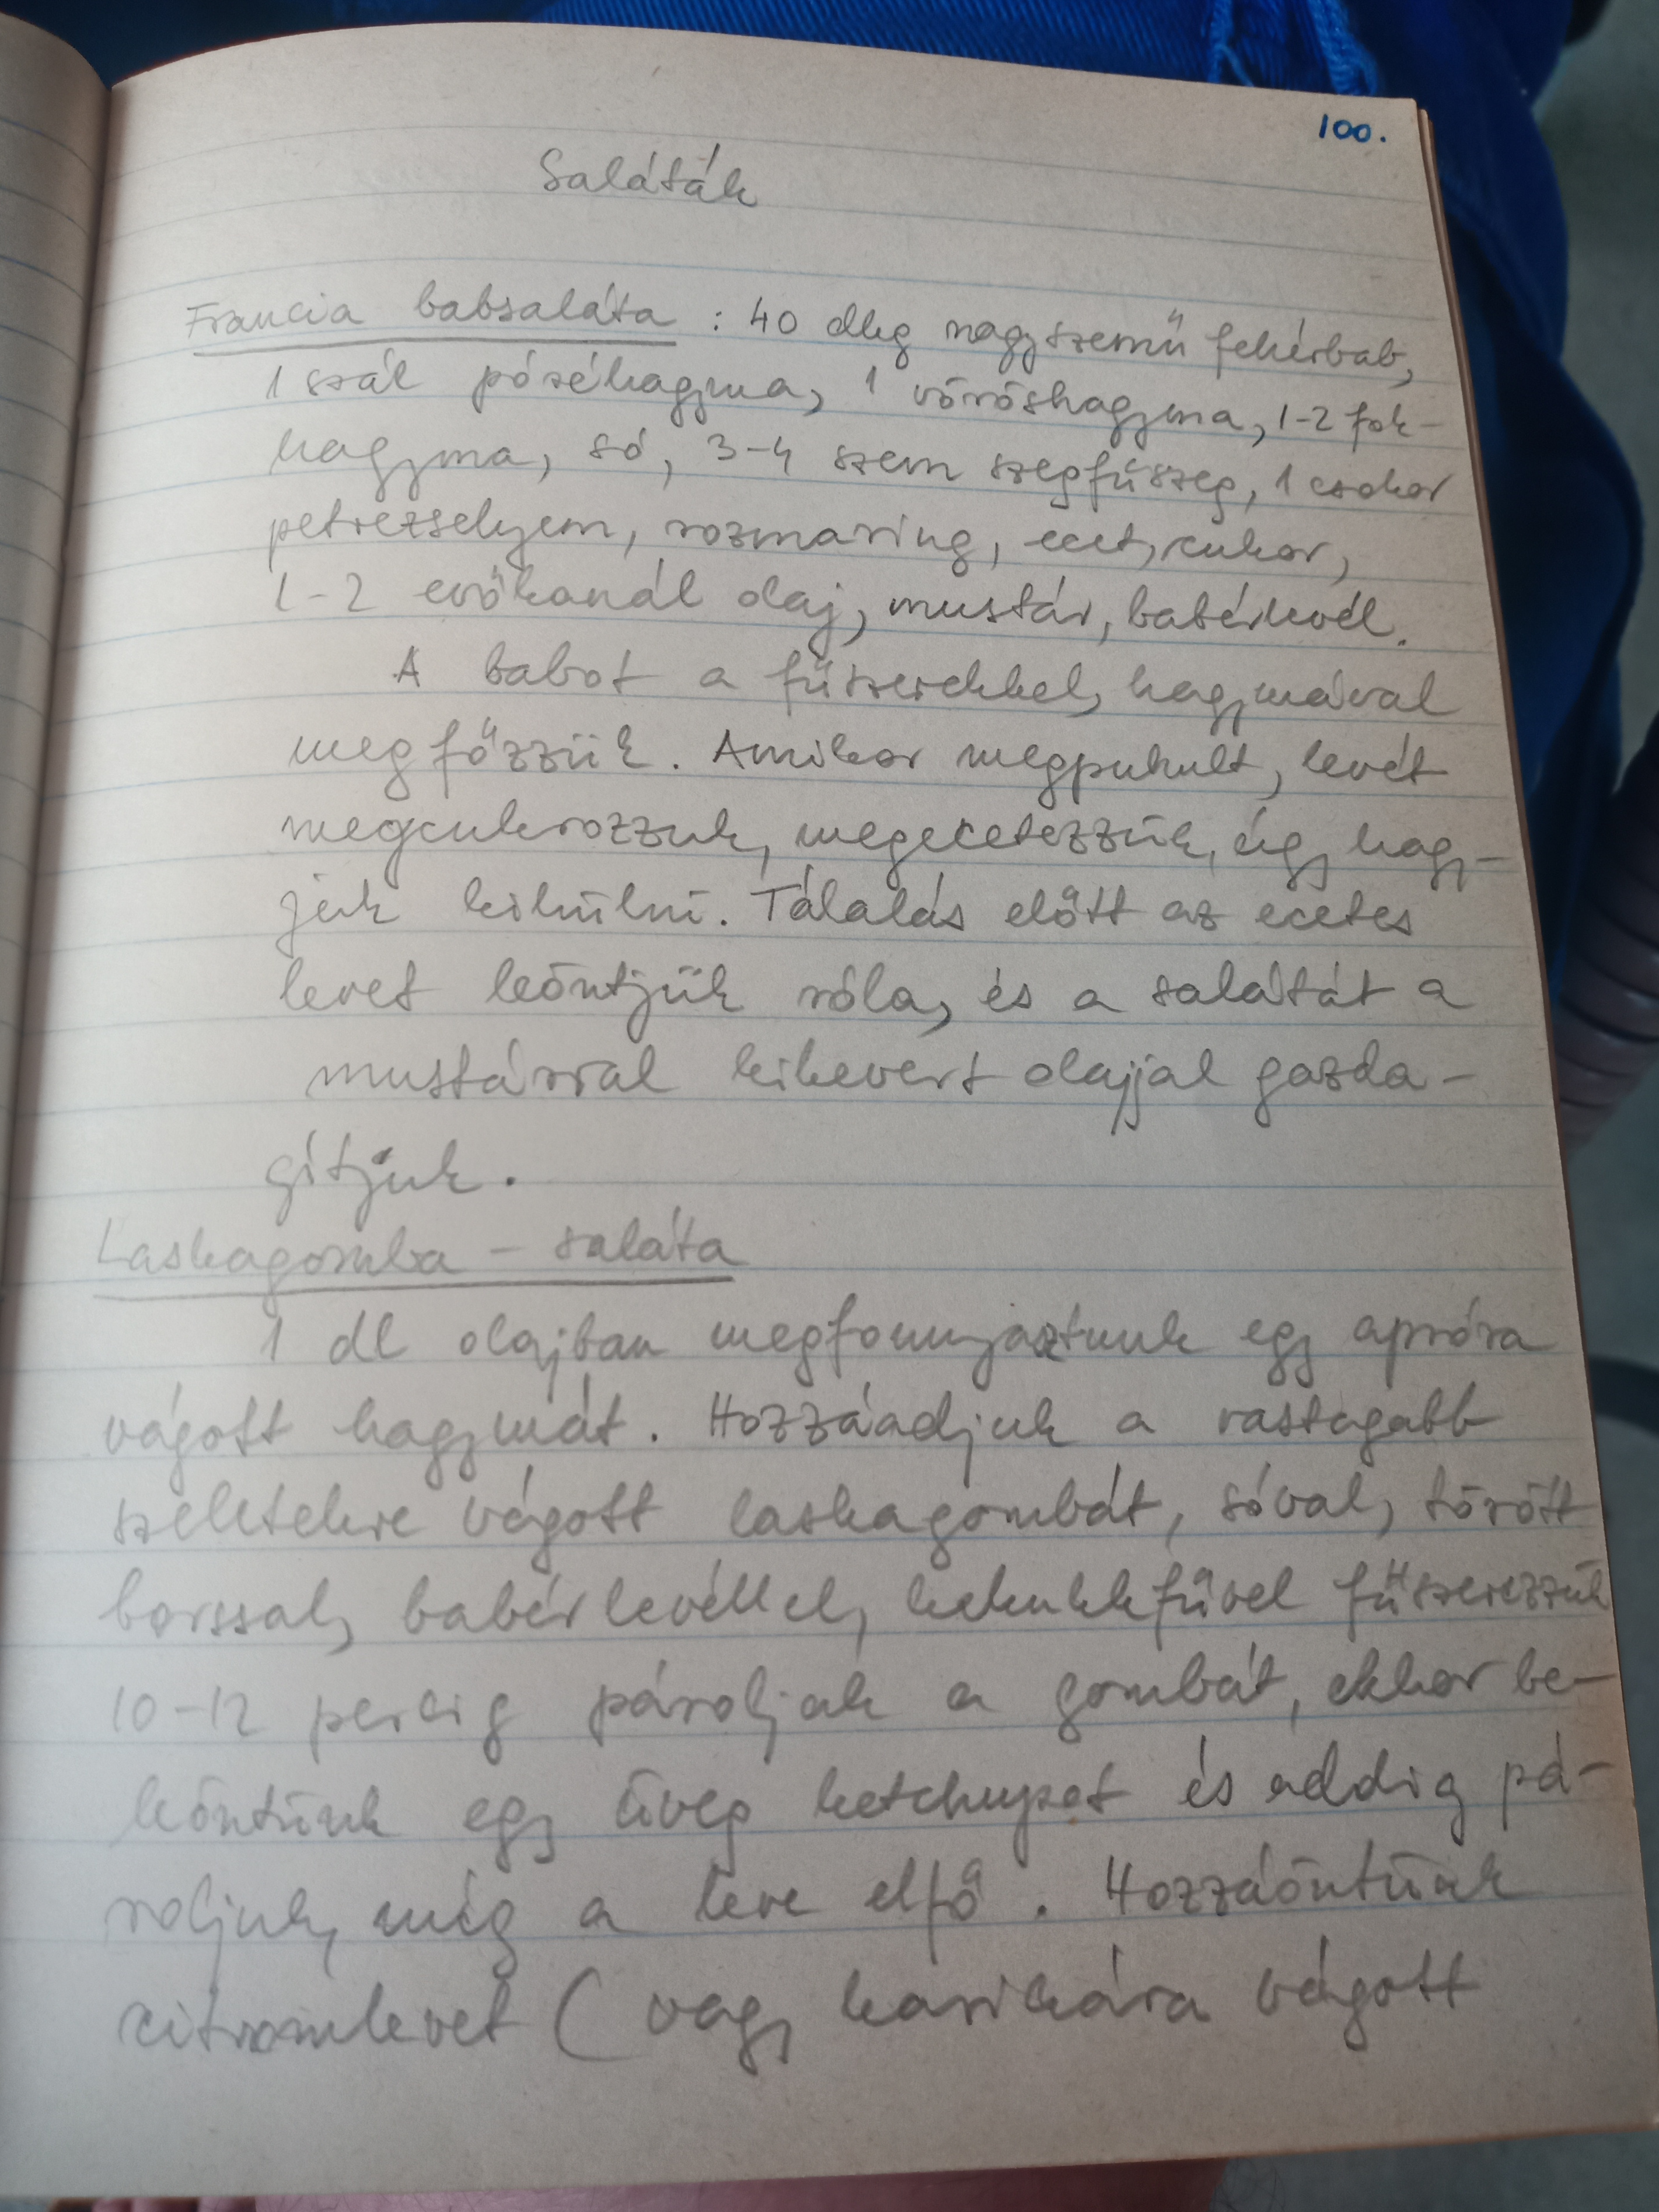 100.
Saláták
Francia babsaláta : 40 dkg nagyszemű fehérbab,
1 szál póréhagyma, 1 vöröshagyma, 1-2 fok-
hagyma, só, 3-4 szem szegfűszeg, 1 csokor
petrezselyem, rozmaring, ecet, cukor,
1-2 evőkanál olaj, mustár, babérlevél.
A babot a fűszerekkel, hagymával
megfőzzük. Amikor megpuhult, levét
megcukrozzuk, megecetezzük, úgy hagy-
juk kihűlni. Tálalás előtt az ecetes
levet leöntjük róla, és a salátát a
mustárral kikevert olajjal gazda-
gítjuk.
Laskagomba - saláta
1 dl olajban megfonnyasztunk egy apróra
vágott hagymát. Hozzáadjuk a vastagabb
szeletekre vágott laskagombát, sóval, törött
borssal, babérlevéllel, kakukkfűvel fűszerezzük
10-12 percig pároljuk a gombát, ekkor be-
leöntünk egy üveg ketchupot és addig pá-
roljuk, míg a leve elfő. Hozzáöntünk
citromlevet (vagy karikára vágott